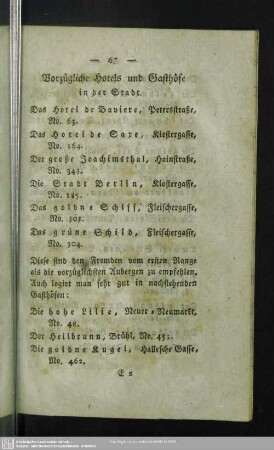 — 67 —
Vorzügliche Hotels und Gasthöfe
in der Stadt.
Das Hotel de Baviere, Petersstraße,
No. 63.
Das Hotel de Saxe, Klostergasse,
No. 164.
Der große Joachimsthal, Hainstraße,
No. 343.
Die Stadt Berlin, Klostergasse,
No. 185.
Das goldne Schiff, Fleischergasse,
No. 303.
Das grüne Schild, Fleischergasse,
No. 304.
Diese sind den Fremden vom ersten Range
als die vorzüglichsten Aubergen zu empfehlen.
Auch logirt man sehr gut in nachstehenden
Gasthöfen:
Die hohe Lilie, Neuer-Neumarkt,
No. 48.
Der Heilbrunn, Brühl, No. 453.
Die goldne Kugel, Hallesche Gasse,
No. 462.
E 2